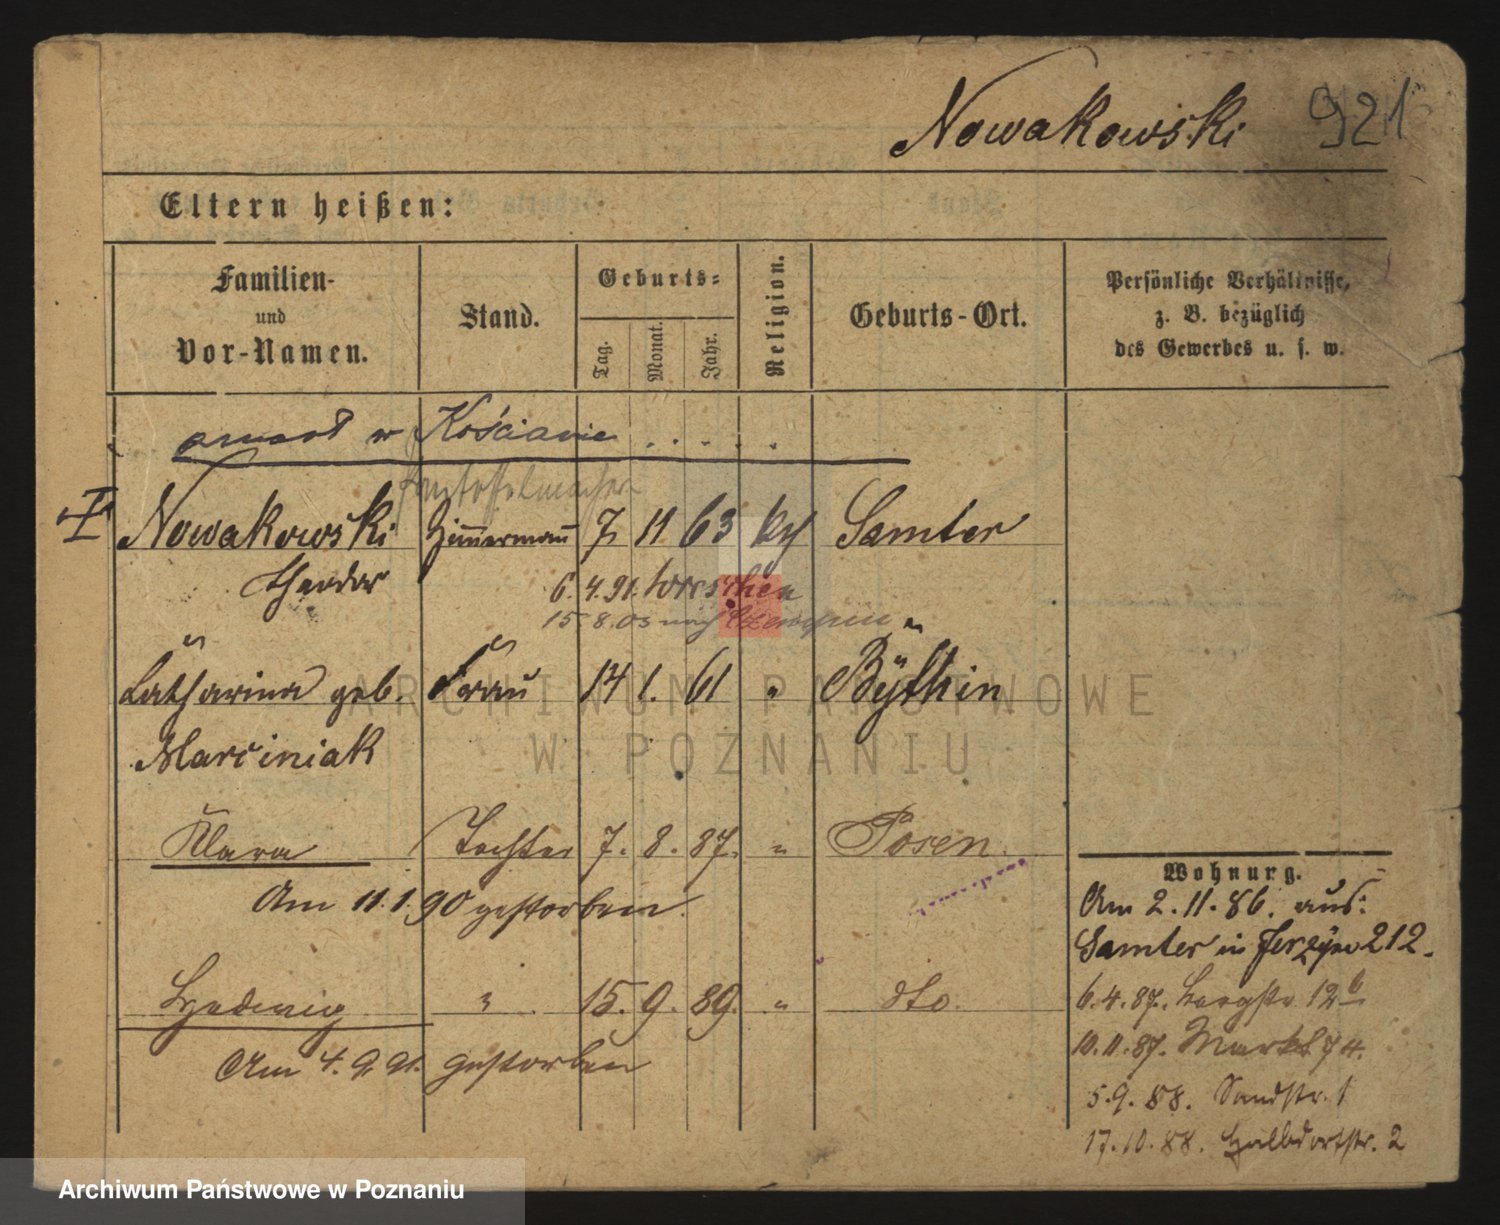 Nowakowski 921
Eltern heißen:
Familien- und Vor-Namen.
Stand.
Geburts-
Tag.
Monat.
Jahr.
Religion.
Geburts-Ort.
Persönliche Verhältnisse,
z. B. bezüglich
des Gewerbes u. s. w.
zmarł w Kościanie . . . . .
Pantoffelmacher
I Nowakowski Zimmermann 7 11 63 kth Samter
Theodor
6.4.91.
15.8.03 nach
Katharina geb. Frau 14 1. 61 " Bythin
Marciniak
Klara Tochter 7. 8. 87. " Posen
Am 11.1.90 gestorben.
Hedwig " 15. 9. 89. " dto.
Am 4.9.91. gestorben
Wohnung.
Am 2.11.86. aus:
Samter in Jerzyce 212.
6.4.87. Bergstr. 12b
10.11.87. Markt 74.
5.9.88. Sandstr. 1
17.10.88. Halbdorfstr. 2
ARCHIWUM PAŃSTWOWE
W POZNANIU
Archiwum Państwowe w Poznaniu